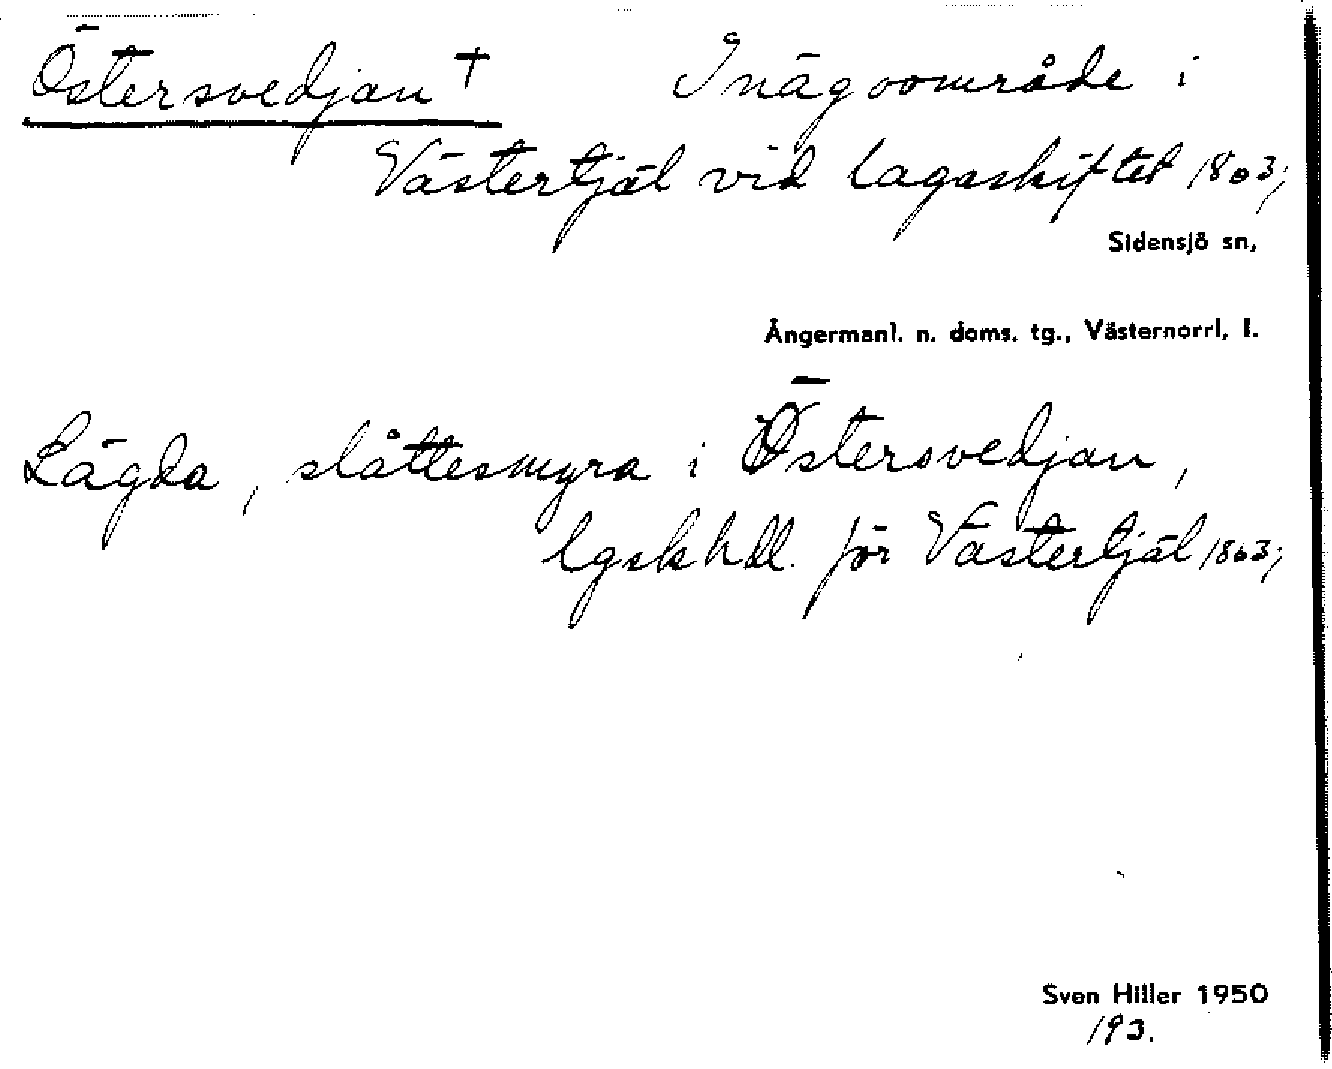 Östersvedjan † Inägoområde i
Västertjäl vid lagaskiftet 1863;
Sidensjö sn,
Ångermanl. n. doms. tg., Västernorrl. l.
Lägda, slåttesmyra i Östersvedjan,
lgskhdl. för Västertjäl 1863;
Sven Hiller 1950
193.